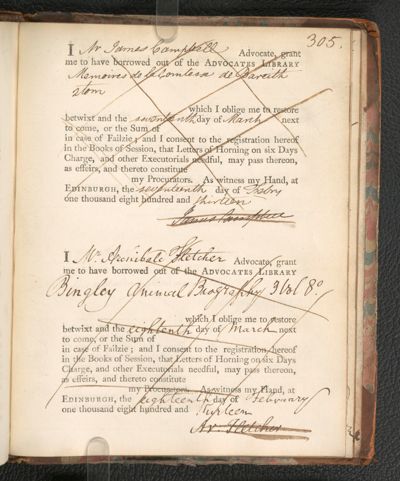 305.
I Mr James Campbell Advocate, grant
me to have borrowed out of the ADVOCATES LIBRARY
Memoires de la Comtesa de Bareith
2 tom
which I oblige me to restore
betwixt and the seventeenth day of March next
to come, or the Sum of
in case of Failzie; and I consent to the registration hereof
in the Books of Session, that Letters of Horning on six Days
Charge, and other Executorials needful, may pass thereon,
as effeirs, and thereto constitute
my Procurators. As witness my Hand, at
EDINBURGH, the seventeenth day of Febry
one thousand eight hundred and thirteen
James Campbell
I Mr Archibald Fletcher Advocate, grant
me to have borrowed out of the ADVOCATES LIBRARY
Bingley Animal Biography 3 Vol 8o.
which I oblige me to restore
betwixt and the eighteenth day of March next
to come, or the Sum of
in case of Failzie; and I consent to the registration hereof
in the Books of Session, that Letters of Horning on six Days
Charge, and other Executorials needful, may pass thereon,
as effeirs, and thereto constitute
my Procurators. As witness my Hand, at
EDINBURGH, the eighteenth day of February
one thousand eight hundred and thirteen
Ar. Fletcher